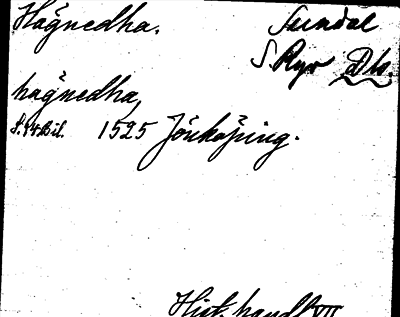 Hägnedha.
Sundal
S. Ryr Dls.
hägnedha,
1525 Jönköping.
Hist. handl VII